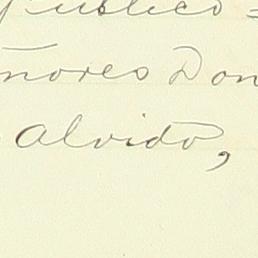 publico =
ñores Don
alvido,